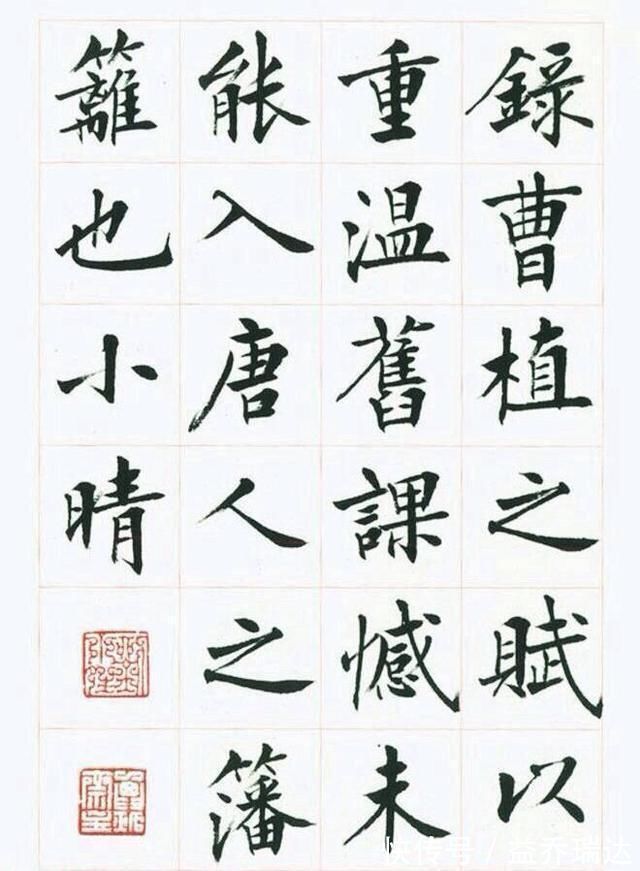 錄曹植之賦以
重温舊課憾未
能入唐人之籓
籬也小晴
快传号／益乔瑞达